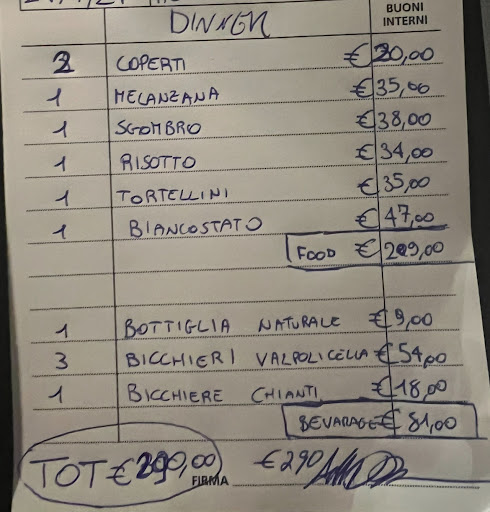 DINNER BUONI INTERNI
2 COPERTI €20,00
1 MELANZANA €35,00
1 SGOMBRO €38,00
1 RISOTTO €34,00
1 TORTELLINI €35,00
1 BIANCOSTATO €47,00
FOOD €209,00
1 BOTTIGLIA NATURALE €9,00
3 BICCHIERI VALPOLICELLA €54,00
1 BICCHIERE CHIANTI €18,00
BEVARAGE € 81,00
TOT € 290,00 FIRMA €290